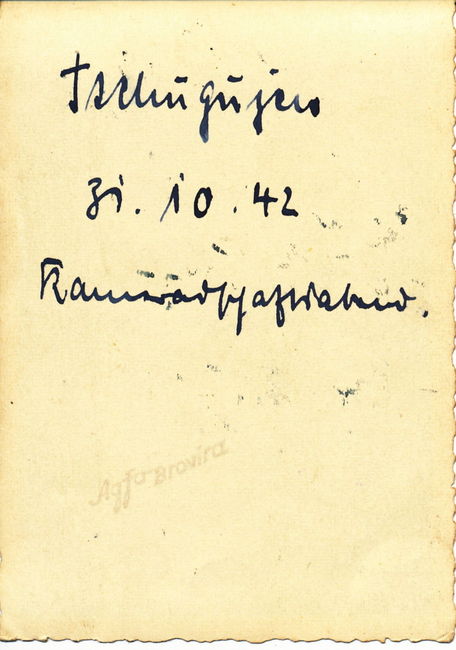 Tschugujew
31.10.42
Kameradschaftsabend.
Agfa-Brovira